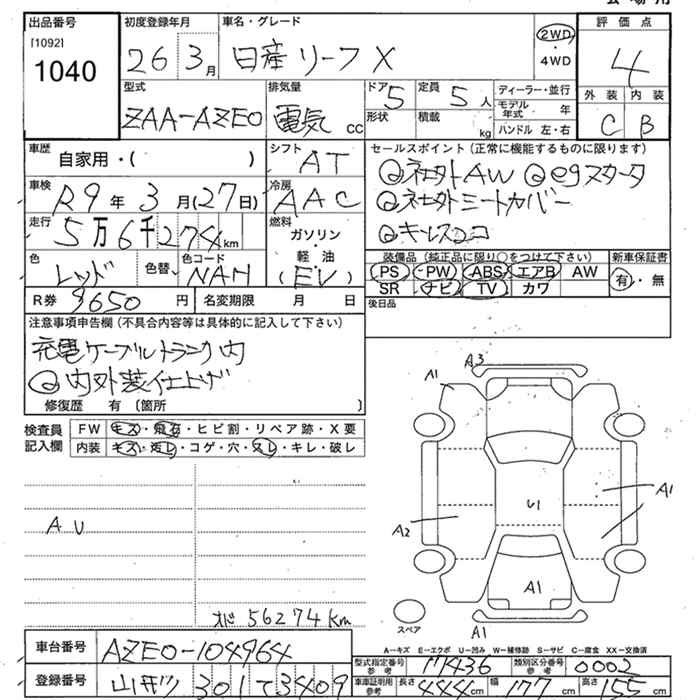 出品番号
[1092]
1040
初度登録年月
26 3月
車名・グレード
日産 リーフ X
2WD
・
4WD
評価点
4
型式
ZAA-AZE0
排気量
電気 cc
ドア 5
形状
定員 5 人
積載 kg
ディーラー・並行
モデル年式 年
ハンドル 左・右
外装 内装
C B
車歴
自家用・( )
シフト
AT
セールスポイント(正常に機能するものに限ります)
◎社外AW ◎egスタータ
◎社外シートカバー
◎キーレスココ
車検
R9年 3月(27日)
冷房
AAC
走行
5万6千274km
燃料
ガソリン
・
軽油
(EV)
色
レッド
色替
色コード
NAH
装備品(純正品に限り○をつけて下さい)
PS・PW・ABS・エアB・AW
SR ナビ TV カワ
新車保証書
有・無
R券 9650円
名変期限 月 日
後日品
注意事項申告欄(不具合内容等は具体的に記入して下さい)
充電ケーブルトランク内
◎内外装仕上げ
修復歴 有 〔箇所 〕
検査員
記入欄
FW キズ・飛石・ヒビ割・リペア跡・X要
内装 キズ・汚レ・コゲ・穴・スレ・キレ・破レ
AU
オド 56274km
A3
A1
U1
A1
A2
A1
A1
スペア
A-キズ E-エクボ U-凹み W-補修跡 S-サビ C-腐食 XX-交換済
車台番号 AZE0-104964
型式指定番号 参考 17436
類別区分番号 参考 0002
登録番号 301 て 3409
車庫証明用 参考 長さ 444cm 幅 177cm 高さ 155cm